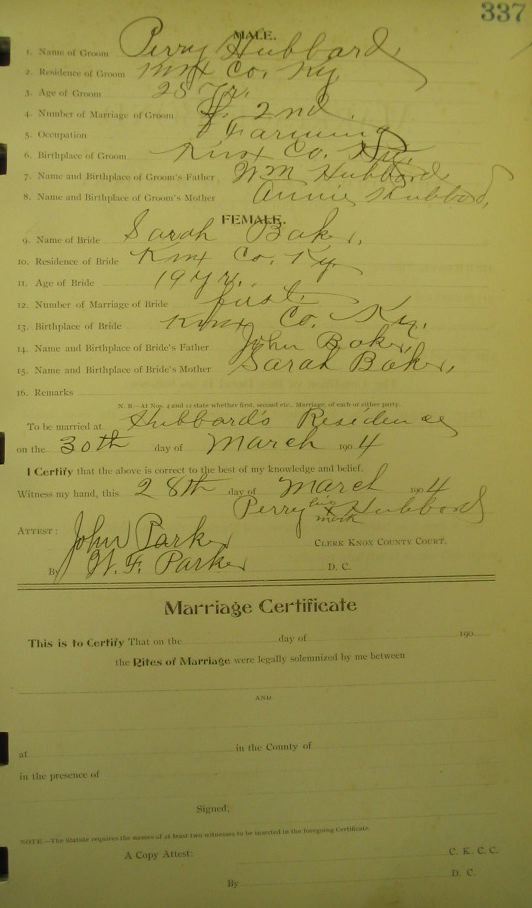 337
MALE.
1. Name of Groom Perry Hubbard
2. Residence of Groom Knox Co. Ky.
3. Age of Groom 25 Yr.
4. Number of Marriage of Groom 2nd.
5. Occupation Farming
6. Birthplace of Groom Knox Co. Ky.
7. Name and Birthplace of Groom's Father Wm Hubbard
8. Name and Birthplace of Groom's Mother Annie Hubbard,
FEMALE.
9. Name of Bride Sarah Baker,
10. Residence of Bride Knox Co. Ky
11. Age of Bride 19 yr.
12. Number of Marriage of Bride first
13. Birthplace of Bride Knox Co. Ky.
14. Name and Birthplace of Bride's Father John Baker,
15. Name and Birthplace of Bride's Mother Sarah Baker,
16. Remarks
N. B.—At Nos. 4 and 12 state whether first, second etc., Marriage, of each or either party.
To be married at Hubbard's Residence
on the 30th day of March 1904
I Certify that the above is correct to the best of my knowledge and belief.
Witness my hand, this 28th day of March 1904
Perry his x mark Hubbard
ATTEST:
John Parker CLERK KNOX COUNTY COURT.
By W. F. Parker D. C.
Marriage Certificate
This is to Certify That on the day of 190
the Rites of Marriage were legally solemnized by me between
AND
at in the County of
in the presence of
Signed,
NOTE.—The Statute requires the names of at least two witnesses to be inserted in the foregoing Certificate.
A Copy Attest: C. K. C. C.
By D. C.